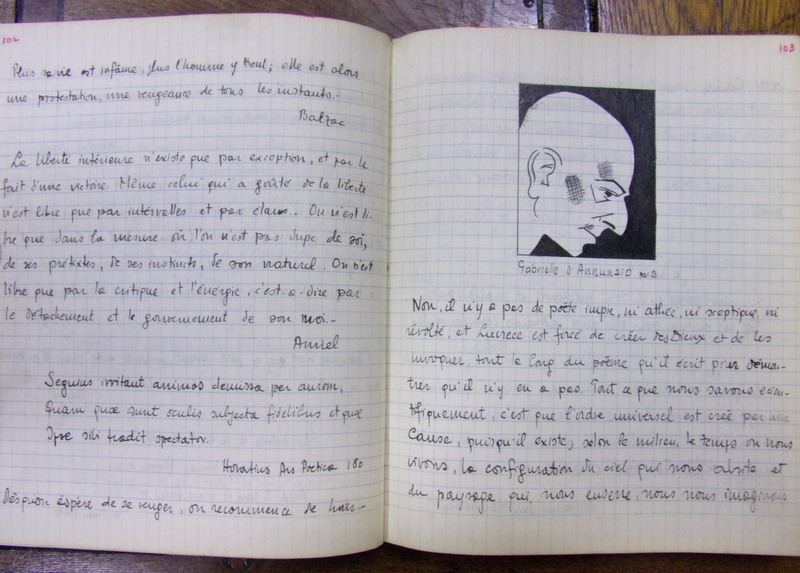 102
Plus sa vie est infâme, plus l'homme y tient; elle est alors
une protestation, une vengeance de tous les instants.-
Balzac
La liberté intérieure n'existe que par exception, et par le
fait d'une victoire. Même celui qui a goûté de la liberté
n'est libre que par intervalles et par élans.. On n'est li-
bre que dans la mesure où l'on n'est pas dupe de soi,
de ses prétextes, de ses instincts, de son naturel. On n'est
libre que par la critique et l'énergie, c'est-a-dire par
le détachement et le gouvernement de son moi.-
Amiel
Segnius irritant animos demissa per aurem,
Quam quae sunt oculis subjecta fidelibus et quae
Ipse sibi tradit spectator.
Horatius Ars Poetica 180
Dès qu'on espère de se venger, on recommence de haïr.-
103
Gabrielle d'Annunzio
Non, il n'y a pas de poète impie, ni athée, ni sceptique, ni
révolté, et Lucrèce est forcé de créer des Dieux et de les
invoquer, tout le long du poème qu'il écrit pour démon-
trer qu'il n'y en a pas. Tout ce que nous savons scien-
tifiquement, c'est que l'ordre universel est créé par une
Cause, puisqu'il existe; selon le milieu, le temps où nous
vivons, la configuration du ciel qui nous abrite et
du paysage qui nous enserre, nous nous imaginons